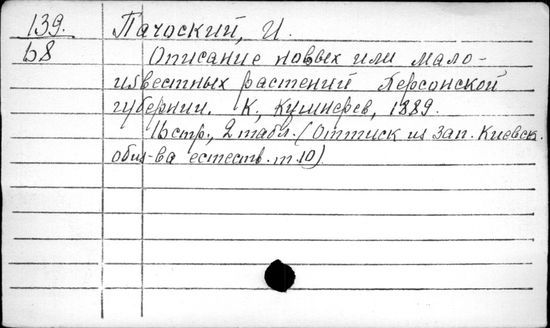 139. Пачоский, И.
b8 Описание новых или мало-
известных растений Херсонской
губернии. К, Кушнерев, 1889.
16стр, 2 табл. (Оттиск из Зап. Киевск.
общ-ва естеств. т. 10)